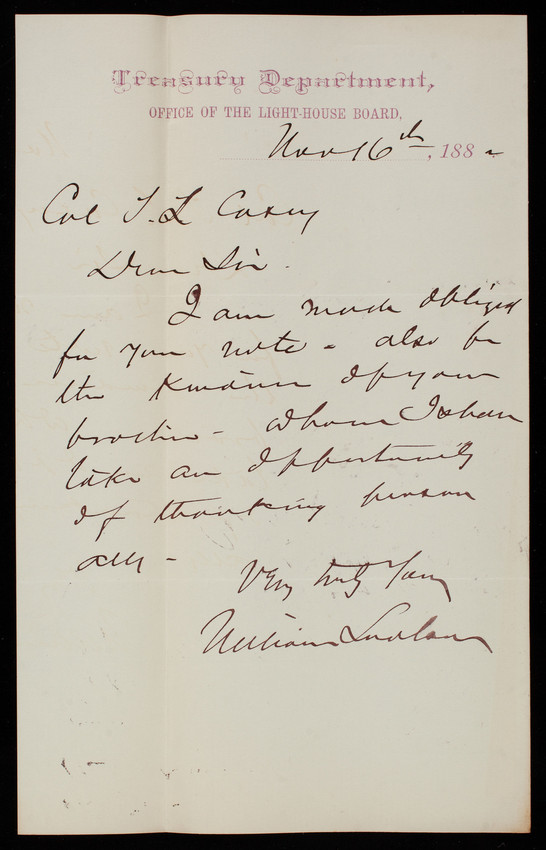 Treasury Department,
OFFICE OF THE LIGHT-HOUSE BOARD,
Nov 16th, 188
Col T. L. Casey
Dear Sir.
I am much obliged
for your note - also for
the kindness of your
brother - whom I shall
take an opportunity
of thanking person
ally -
Very truly Yours
William Ludlow